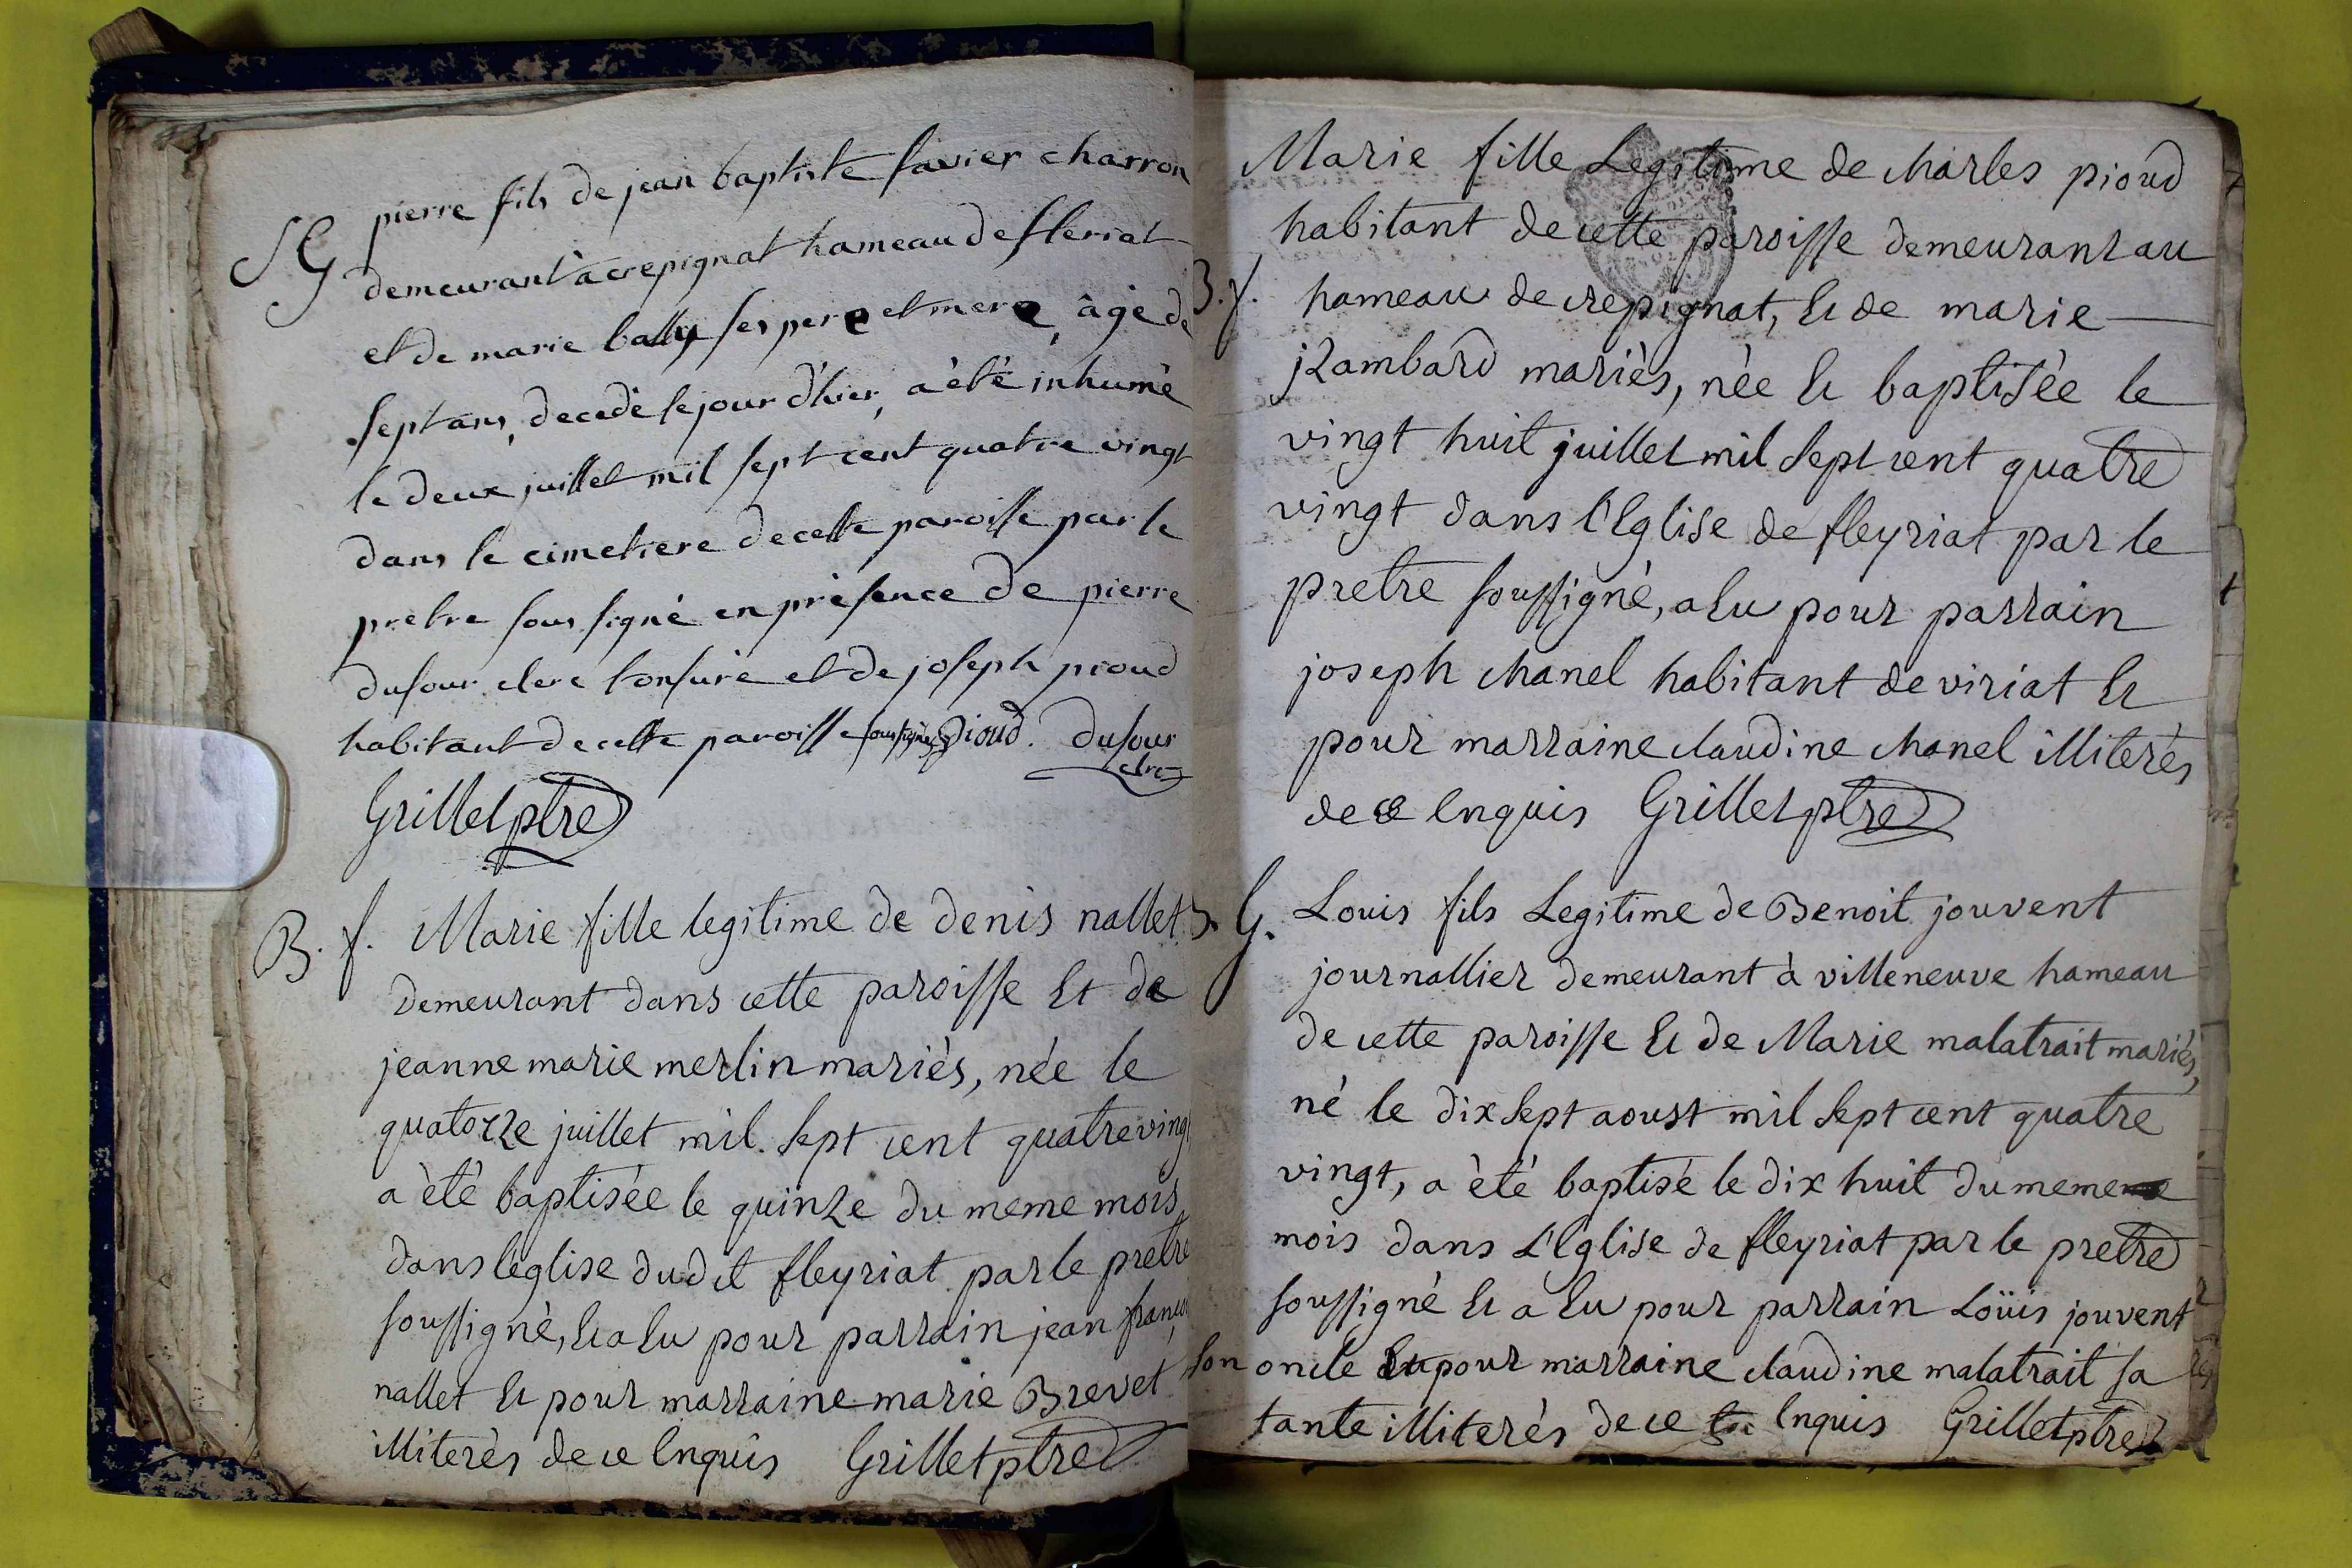 SG
pierre fils de jean baptiste favier charron
demeurant à crepignat hameau de fleriat
et de marie bally ses pere et mere, âgé de
sept ans, decedé le jour d'hier, a été inhumé
le deux juillet mil sept cent quatre vingt
dans le cimetiere de cette paroisse par le
pretre sous signé en présence de pierre
dufour clerc tonsuré et de joseph pioud
habitant de cette paroisse soussignés Pioud. Dufour
clrc
Grillet ptre
B. f. Marie fille legitime de denis nallet
demeurant dans cette paroisse Et de
jeanne marie merlin mariés, née le
quatorze juillet mil sept cent quatre vingt
a été baptisée le quinze du meme mois
dans léglise dudit fleyriat par le pretre
soussigné, Et a Eu pour parrain jean
nallet Et pour marraine marie Brevet
illiterés de ce Enquis Grillet ptre
Marie fille Legitime de charles pioud
habitant de cette paroisse demeurant au
B. f. hameau de crepignat, Et de marie
Rambard mariés, née Et baptisée le
vingt huit juillet mil sept cent quatre
vingt dans l'Eglise de fleyriat par le
pretre soussigné, a Eu pour parrain
joseph chanel habitant de viriat Et
pour marraine claudine chanel illiterés
de ce Enquis Grillet ptre
B. G. Louis fils Legitime de Benoit jouvent
journallier demeurant à villeneuve hameau
de cette paroisse Et de Marie malatrait mariés,
né le dix sept aoust mil sept cent quatre
vingt, a été baptisé le dix huit du meme
mois dans L'Eglise de fleyriat par le pretre
soussigné Et a Eu pour parrain Loüis jouvent
son oncle Et pour marraine claudine malatrait sa
tante illiterés de ce Enquis Grillet ptre